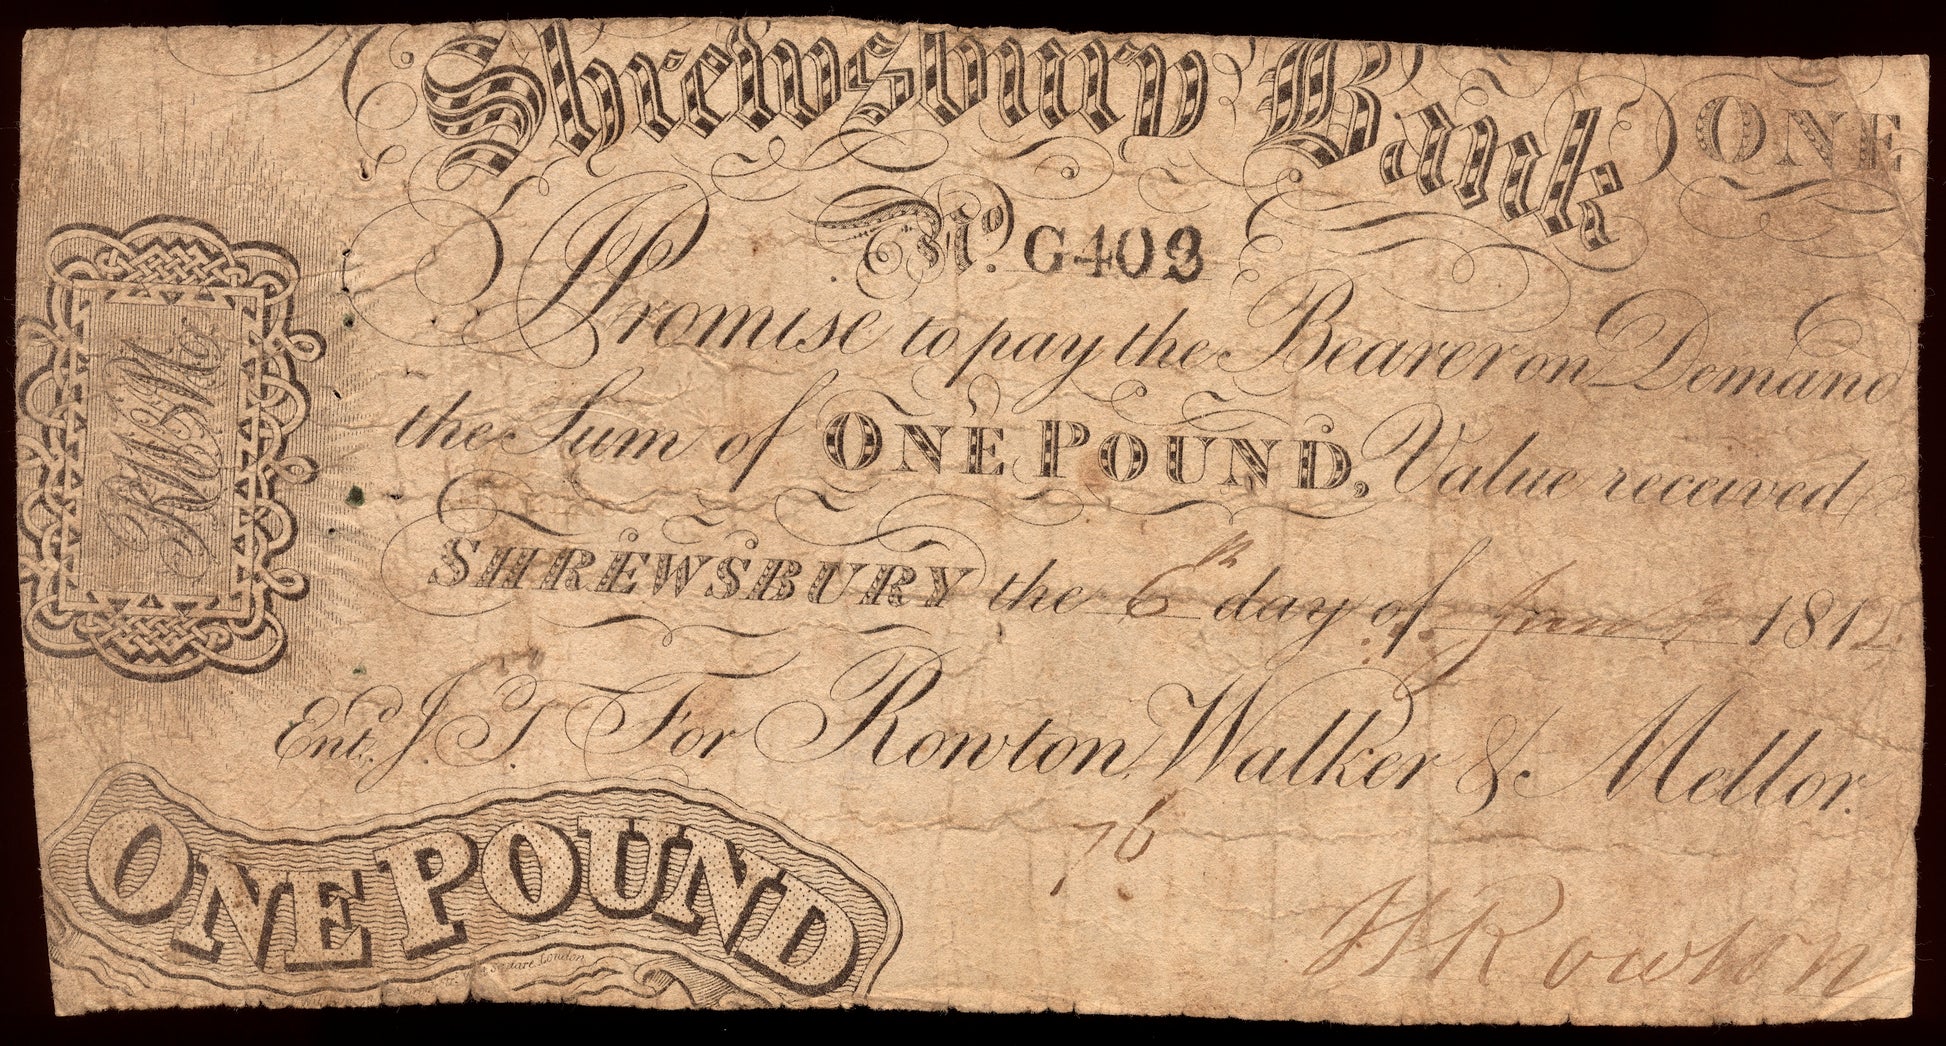 Shrewsbury Bank ONE
No. G403
I Promise to pay the Bearer on Demand
the Sum of ONE POUND, Value received
SHREWSBURY the 6th day of June 1812
Entd. J. T. For Rowton, Walker & Mellor.
76
ONE POUND
Square London
Rowton